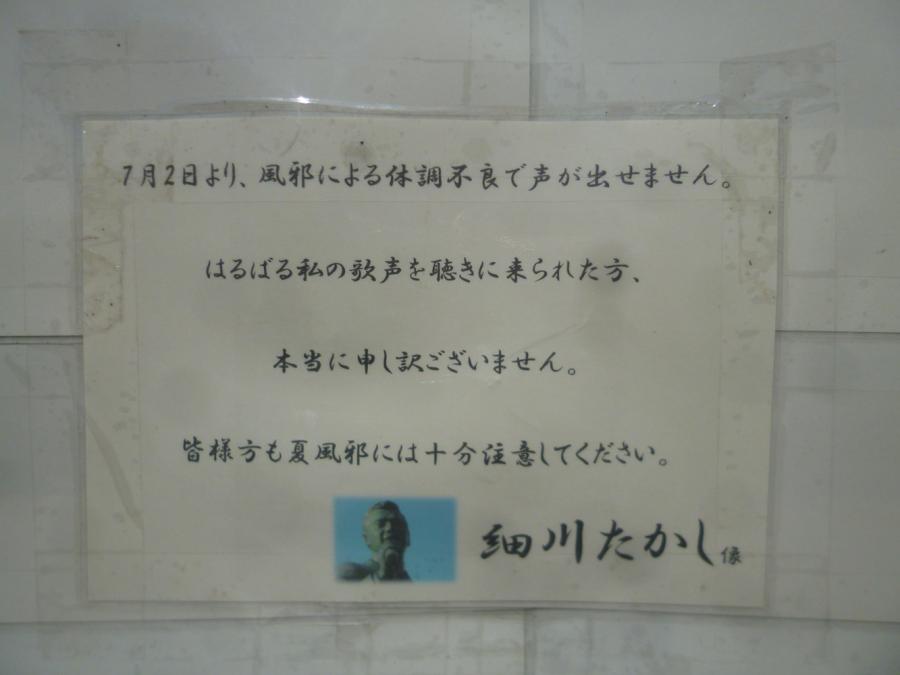 7月2日より、風邪による体調不良で声が出せません。
はるばる私の歌声を聴きに来られた方、
本当に申し訳ございません。
皆様方も夏風邪には十分注意してください。
細川たかし像